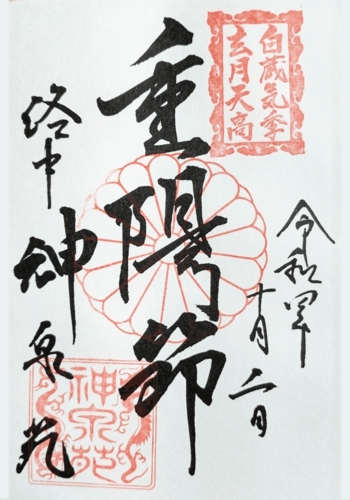 白蔵気季
玄月天高
令和四年
十月二日
重陽節
洛中
神泉苑
神泉苑